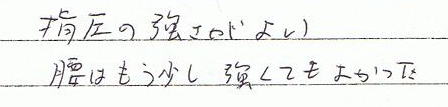 指圧の強さがよい
腰はもう少し強くてもよかった